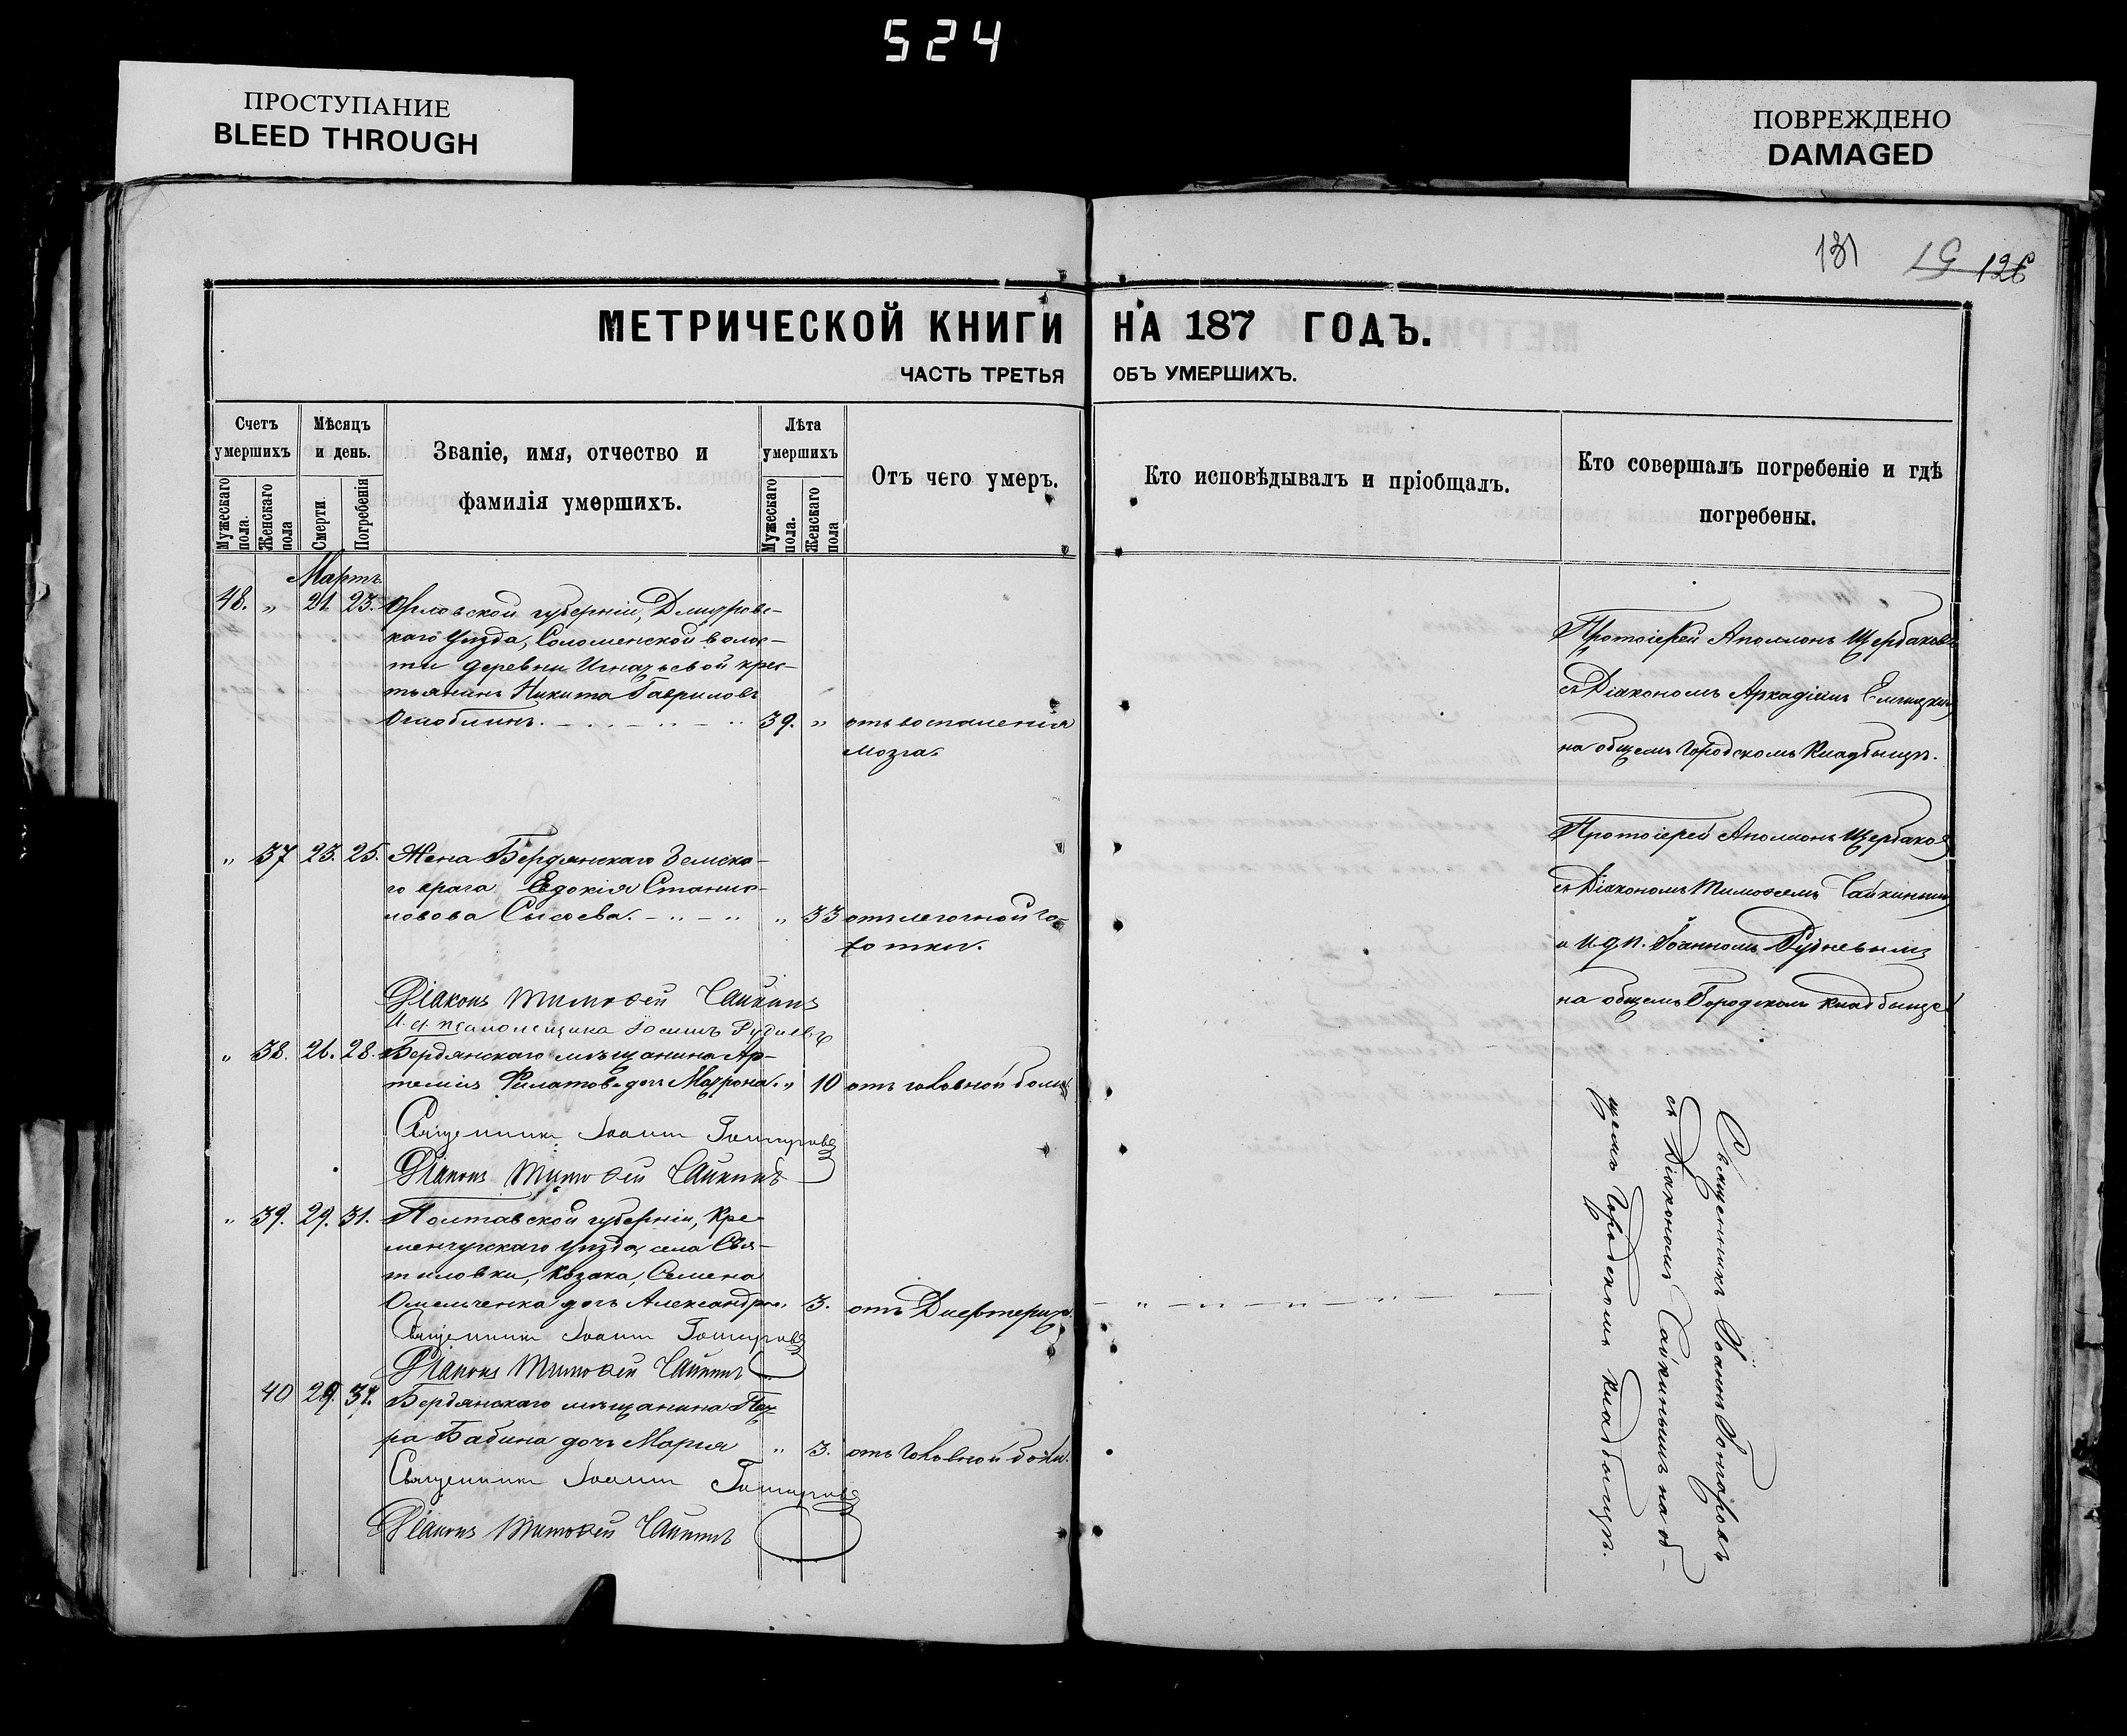 524
ПРОСТУПАНИЕ
BLEED THROUGH
ПОВРЕЖДЕНО
DAMAGED
131 126
МЕТРИЧЕСКОЙ КНИГИ НА 187 ГОДЪ.
ЧАСТЬ ТРЕТЬЯ ОБЪ УМЕРШИХЪ.
Счетъ умершихъ
Мужескаго пола.
Женскаго пола
Мѣсяцъ и день.
Смерти.
Погребенія
Званіе, имя, отчество и
фамилія умершихъ.
Лѣта умершихъ
Мужескаго пола.
Женскаго пола
Отъ чего умеръ.
Кто исповѣдывалъ и пріобщалъ.
Кто совершалъ погребеніе и гдѣ
погребены.
Мартъ
48. „ 21. 23. Орловской губерніи, Дмитровс-
каго уѣзда, Соломенской волос-
ти деревни Игнатьевой крес-
тьянинъ Никита Гавриловъ
39. „ отъ воспаленія
мозга.
Протоіерей Аполлонъ Щербаковъ
съ Діакономъ Аркадіемъ
на общемъ Городскомъ Кладбищѣ.
„ 37 23. 25. Жена Бердянскаго Земска-
го врача Евдокія Станис-
лавова Сысоева. „ 33 отъ легочной ча-
хотки.
Протоіерей Аполлонъ Щербаковъ
съ Діакономъ Тимофеемъ Чайкинымъ
и И. д. п. Іоанномъ Рудневымъ
на общемъ Городскомъ кладбищѣ
Діаконъ Тимофей Чайкинъ
И. д. псаломщика Іоаннъ Рудневъ
„ 38. 26. 28. Бердянскаго мѣщанина Ар-
темія Филатова дочь Матрона. „ 10 отъ головной боли
Священникъ Іоаннъ Гончаровъ
Діаконъ Тимофей Чайкинъ
„ 39. 29. 31. Полтавской губерніи, Кре-
менчугскаго уѣзда, села Свя-
тиловки, козака, Семена
Омельченка дочь Александра. 3. отъ Дифтерита.
Священникъ Іоаннъ Гончаровъ
Діаконъ Тимофей Чайкинъ
40 29. 31. Бердянскаго мѣщанина Пет-
ра Бабина дочь Марія „ 3. отъ головной боли.
Священникъ Іоаннъ Гончаровъ
Діаконъ Тимофей Чайкинъ
Священникъ Іоаннъ Гончаровъ
съ Діакономъ Чайкинымъ на об-
щемъ Городскомъ Кладбищѣ.